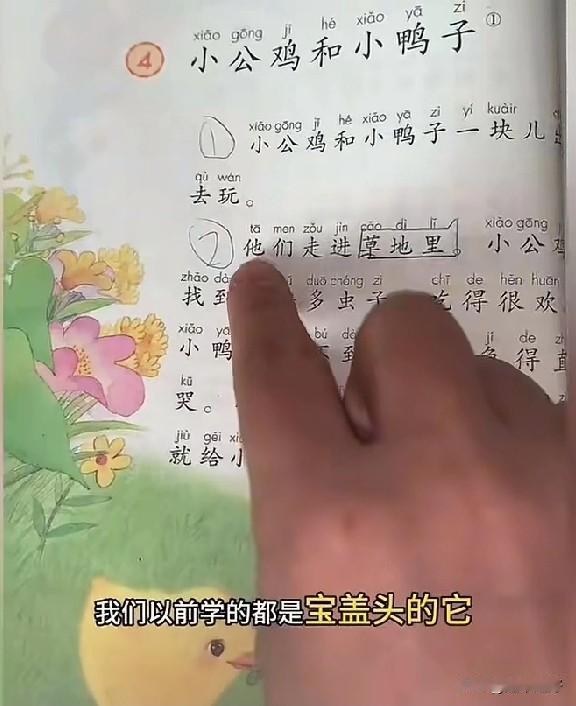 xiǎo gōng jī hé xiǎo yā zi
4 小公鸡和小鸭子①
xiǎo gōng jī hé xiǎo yā zi yí kuàir
① 小公鸡和小鸭子一块儿
qù wán
去玩。
tā men zǒu jìn cǎo dì lǐ xiǎo gōng
② 他们走进草地里。小公鸡
zhǎo duō chóng chī de hěn huān
找到 多虫子 吃得很欢
xiǎo yā jí de
小鸭 到 得
kū
哭。
jiù gěi
就给
我们以前学的都是宝盖头的它